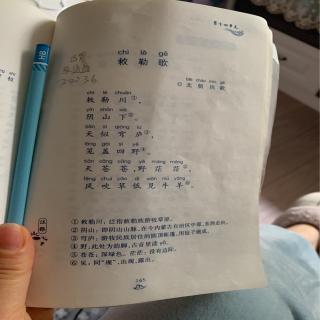 第十四单元
chì lè gē
敕勒歌
běi cháo mín gē
⊙北朝民歌
chì lè chuān
敕勒川①，
yīn shān xià
阴山下②。
tiān sì qióng lú
天似穹庐③，
lǒng gài sì yě
笼盖四野④。
tiān cāng cāng yě máng máng
天苍苍，野茫茫⑤，
fēng chuī cǎo dī xiàn niú yáng
风吹草低见牛羊⑥。
注释
①敕勒川：泛指敕勒族游牧草原。
②阴山：即阴山山脉，在今内蒙古自治区中部，东西走向。
③穹庐：游牧民族居住的圆顶帐篷，用毡子做成。
④野：此处为韵脚，古音是读yǎ。
⑤苍苍：深绿色。茫茫：没有边际。
⑥见：同“现”，出现，露出。
165